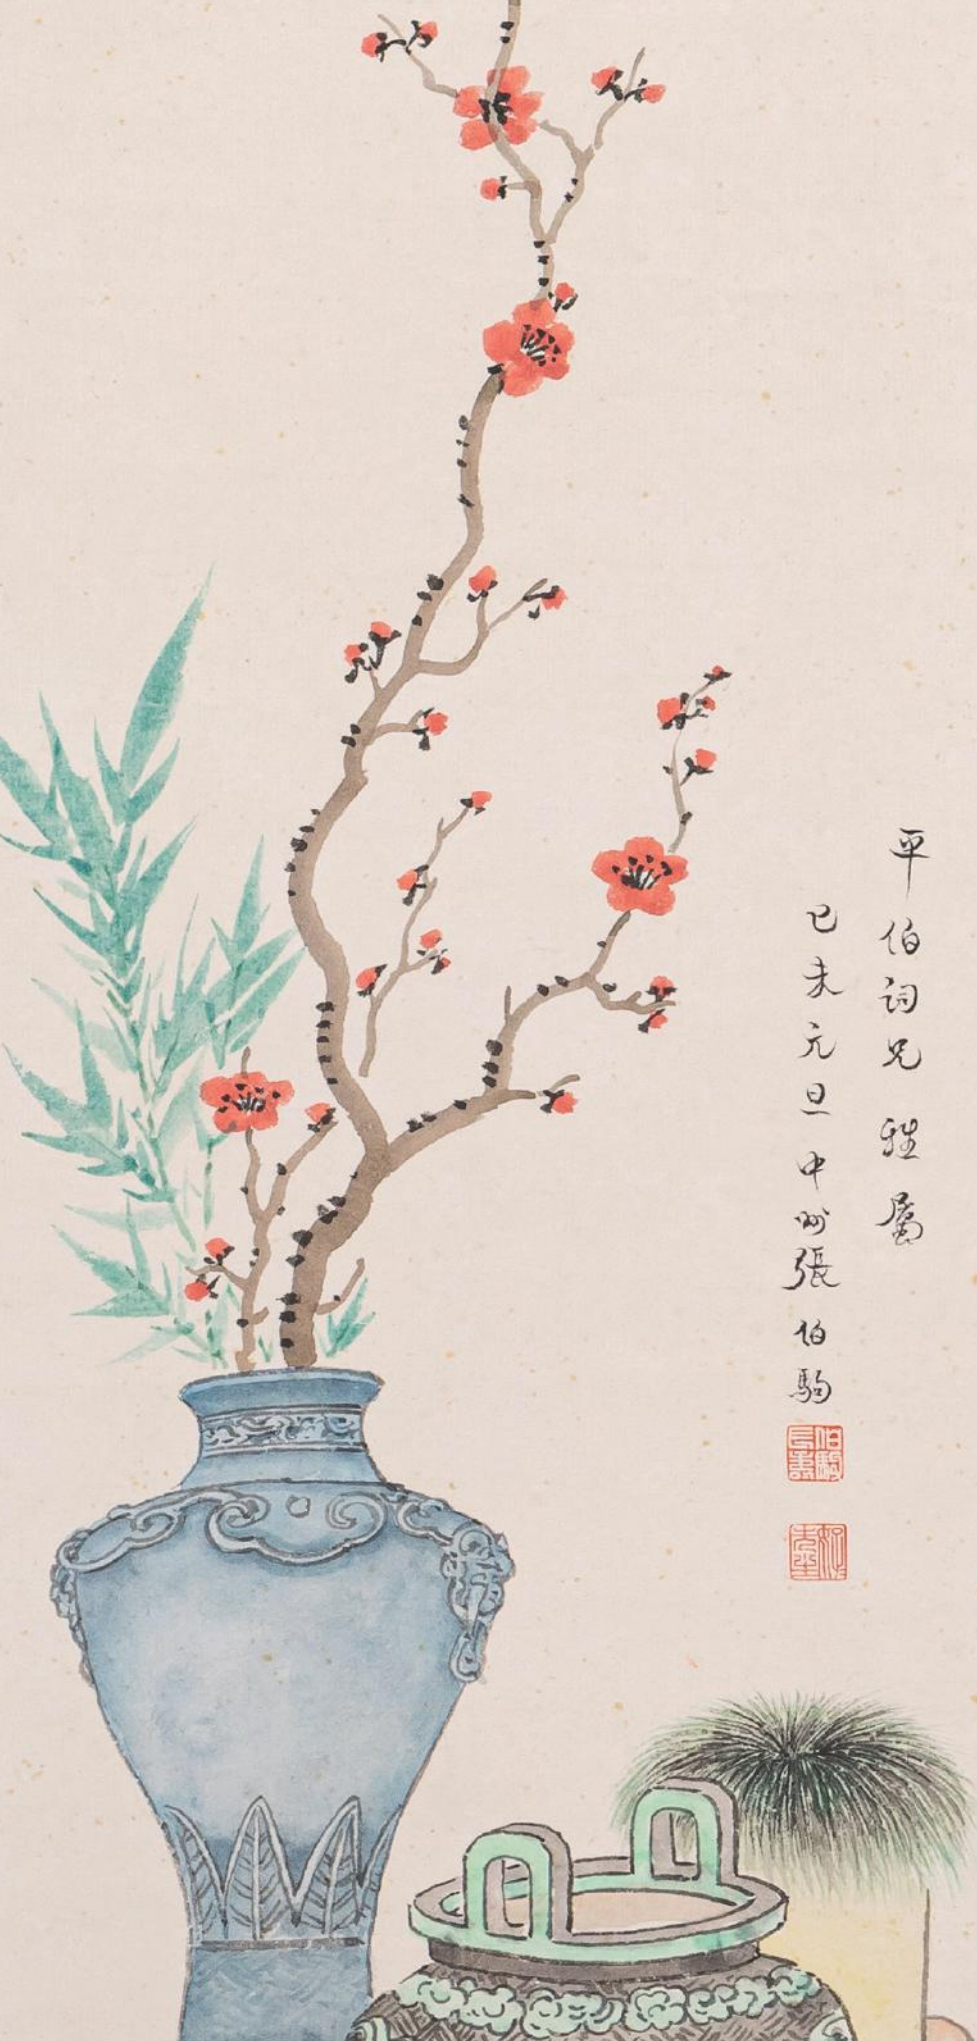 平伯词兄 雅属
己未元旦中州張伯駒
伯駒長壽